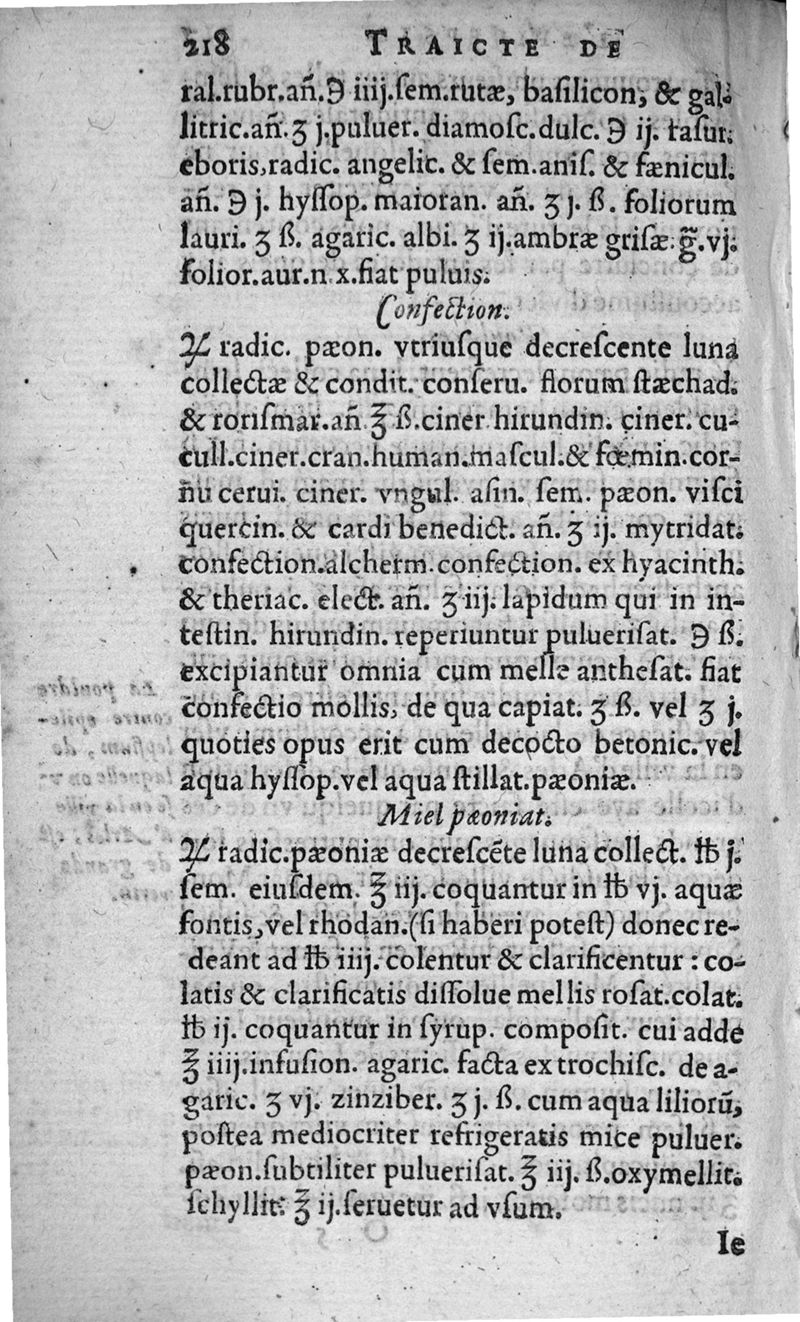 218 TRAICTE DE
ral.rubr.añ.℈ iiij.ſem.rutæ, baſilicon, & gal-
litric.añ.ʒ j.puluer. diamoſc.dulc. ℈ ij. raſur.
eboris,radic. angelic. & ſem.aniſ. & fænicul.
añ. ℈ j. hyſſop. maioran. añ. ʒ j. ß. foliorum
lauri. ʒ ß. agaric. albi. ʒ ij.ambræ griſæ.g̃.vj.
folior.aur.n.x.fiat puluis.
Confection.
♃ radic. pæon. vtriuſque decreſcente luna
collectæ & condit. conſeru. florum ſtæchad.
& roriſmar.añ.℥ ß.ciner.hirundin. ciner. cu-
cull.ciner.cran.human.maſcul.& fœmin.cor-
nu cerui. ciner. vngul. aſin. ſem. pæon. viſci
quercin. & cardi benedict. añ. ʒ ij. mytridat.
confection.alcherm.confection. ex hyacinth.
& theriac. elect. añ. ʒ iij. lapidum qui in in-
teſtin. hirundin. reperiuntur pulueriſat. ℈ ß.
excipiantur omnia cum melle antheſat. fiat
confectio mollis, de qua capiat. ʒ ß. vel ʒ j.
quoties opus erit cum decocto betonic. vel
aqua hyſſop.vel aqua ſtillat.pæoniæ.
Miel pæoniat.
♃ radic.pæoniæ decreſcẽte luna collect. ℔ j.
ſem. eiuſdem. ℥ iij. coquantur in ℔ vj. aquæ
fontis,vel rhodan.(ſi haberi poteſt) donec re-
deant ad ℔ iiij. colentur & clarificentur : co-
latis & clarificatis diſſolue mellis roſat.colat.
℔ ij. coquantur in ſyrup. compoſit. cui adde
℥ iiij.infuſion. agaric. facta ex trochiſc. de a-
garic. ʒ vj. zinziber. ʒ j. ß. cum aqua liliorũ,
poſtea mediocriter refrigeratis mice puluer.
pæon.ſubtiliter pulueriſat. ℥ iij. ß.oxymellit.
ſchyllit. ℥ ij.ſeruetur ad vſum.
Ie